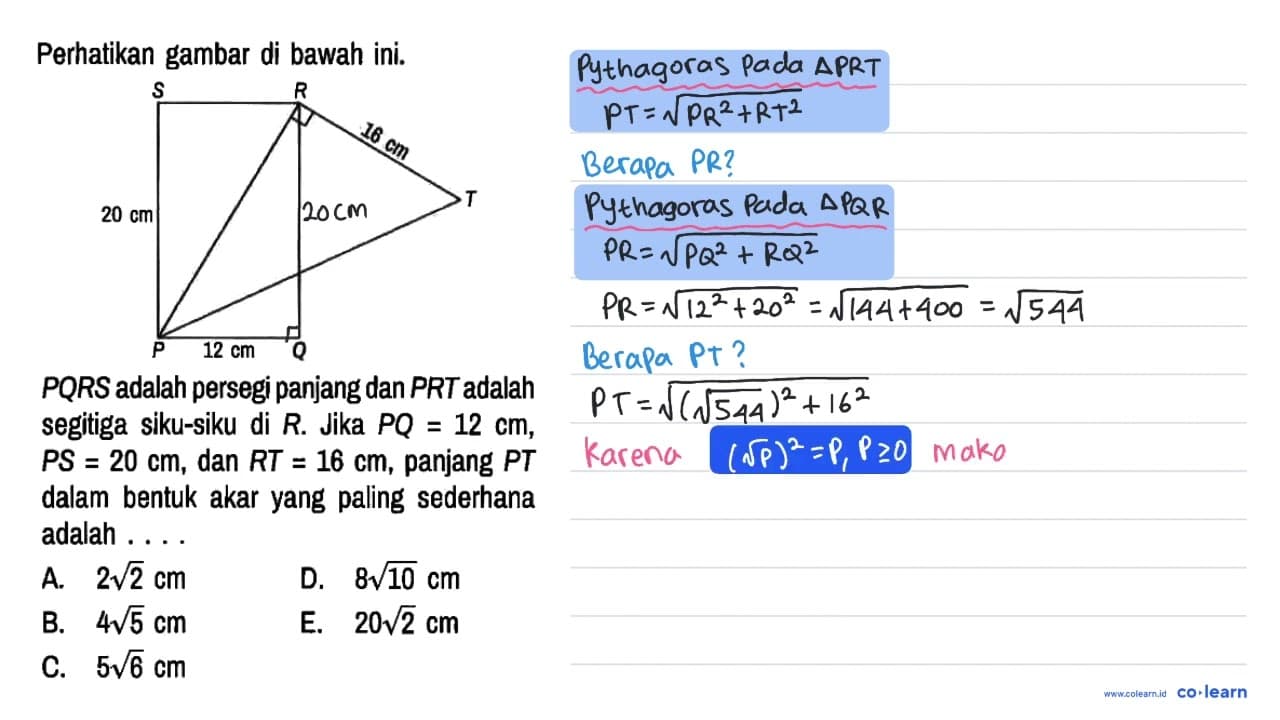 Perhatikan gambar di bawah ini.
S R
16 cm
20 cm
20 cm
T
P 12 cm Q
PQRS adalah persegi panjang dan PRT adalah
segitiga siku-siku di R. Jika PQ = 12 cm,
PS = 20 cm, dan RT = 16 cm, panjang PT
dalam bentuk akar yang paling sederhana
adalah . . . .
A. 2√2 cm D. 8√10 cm
B. 4√5 cm E. 20√2 cm
C. 5√6 cm
Pythagoras Pada △PRT
PT = √(PR² + RT²)
Berapa PR?
Pythagoras Pada △PQR
PR = √(PQ² + RQ²)
PR = √(12² + 20²) = √(144 + 400) = √544
Berapa PT?
PT = √((√544)² + 16²)
Karena (√P)² = P, P ≥ 0 mako
www.colearn.id co·learn